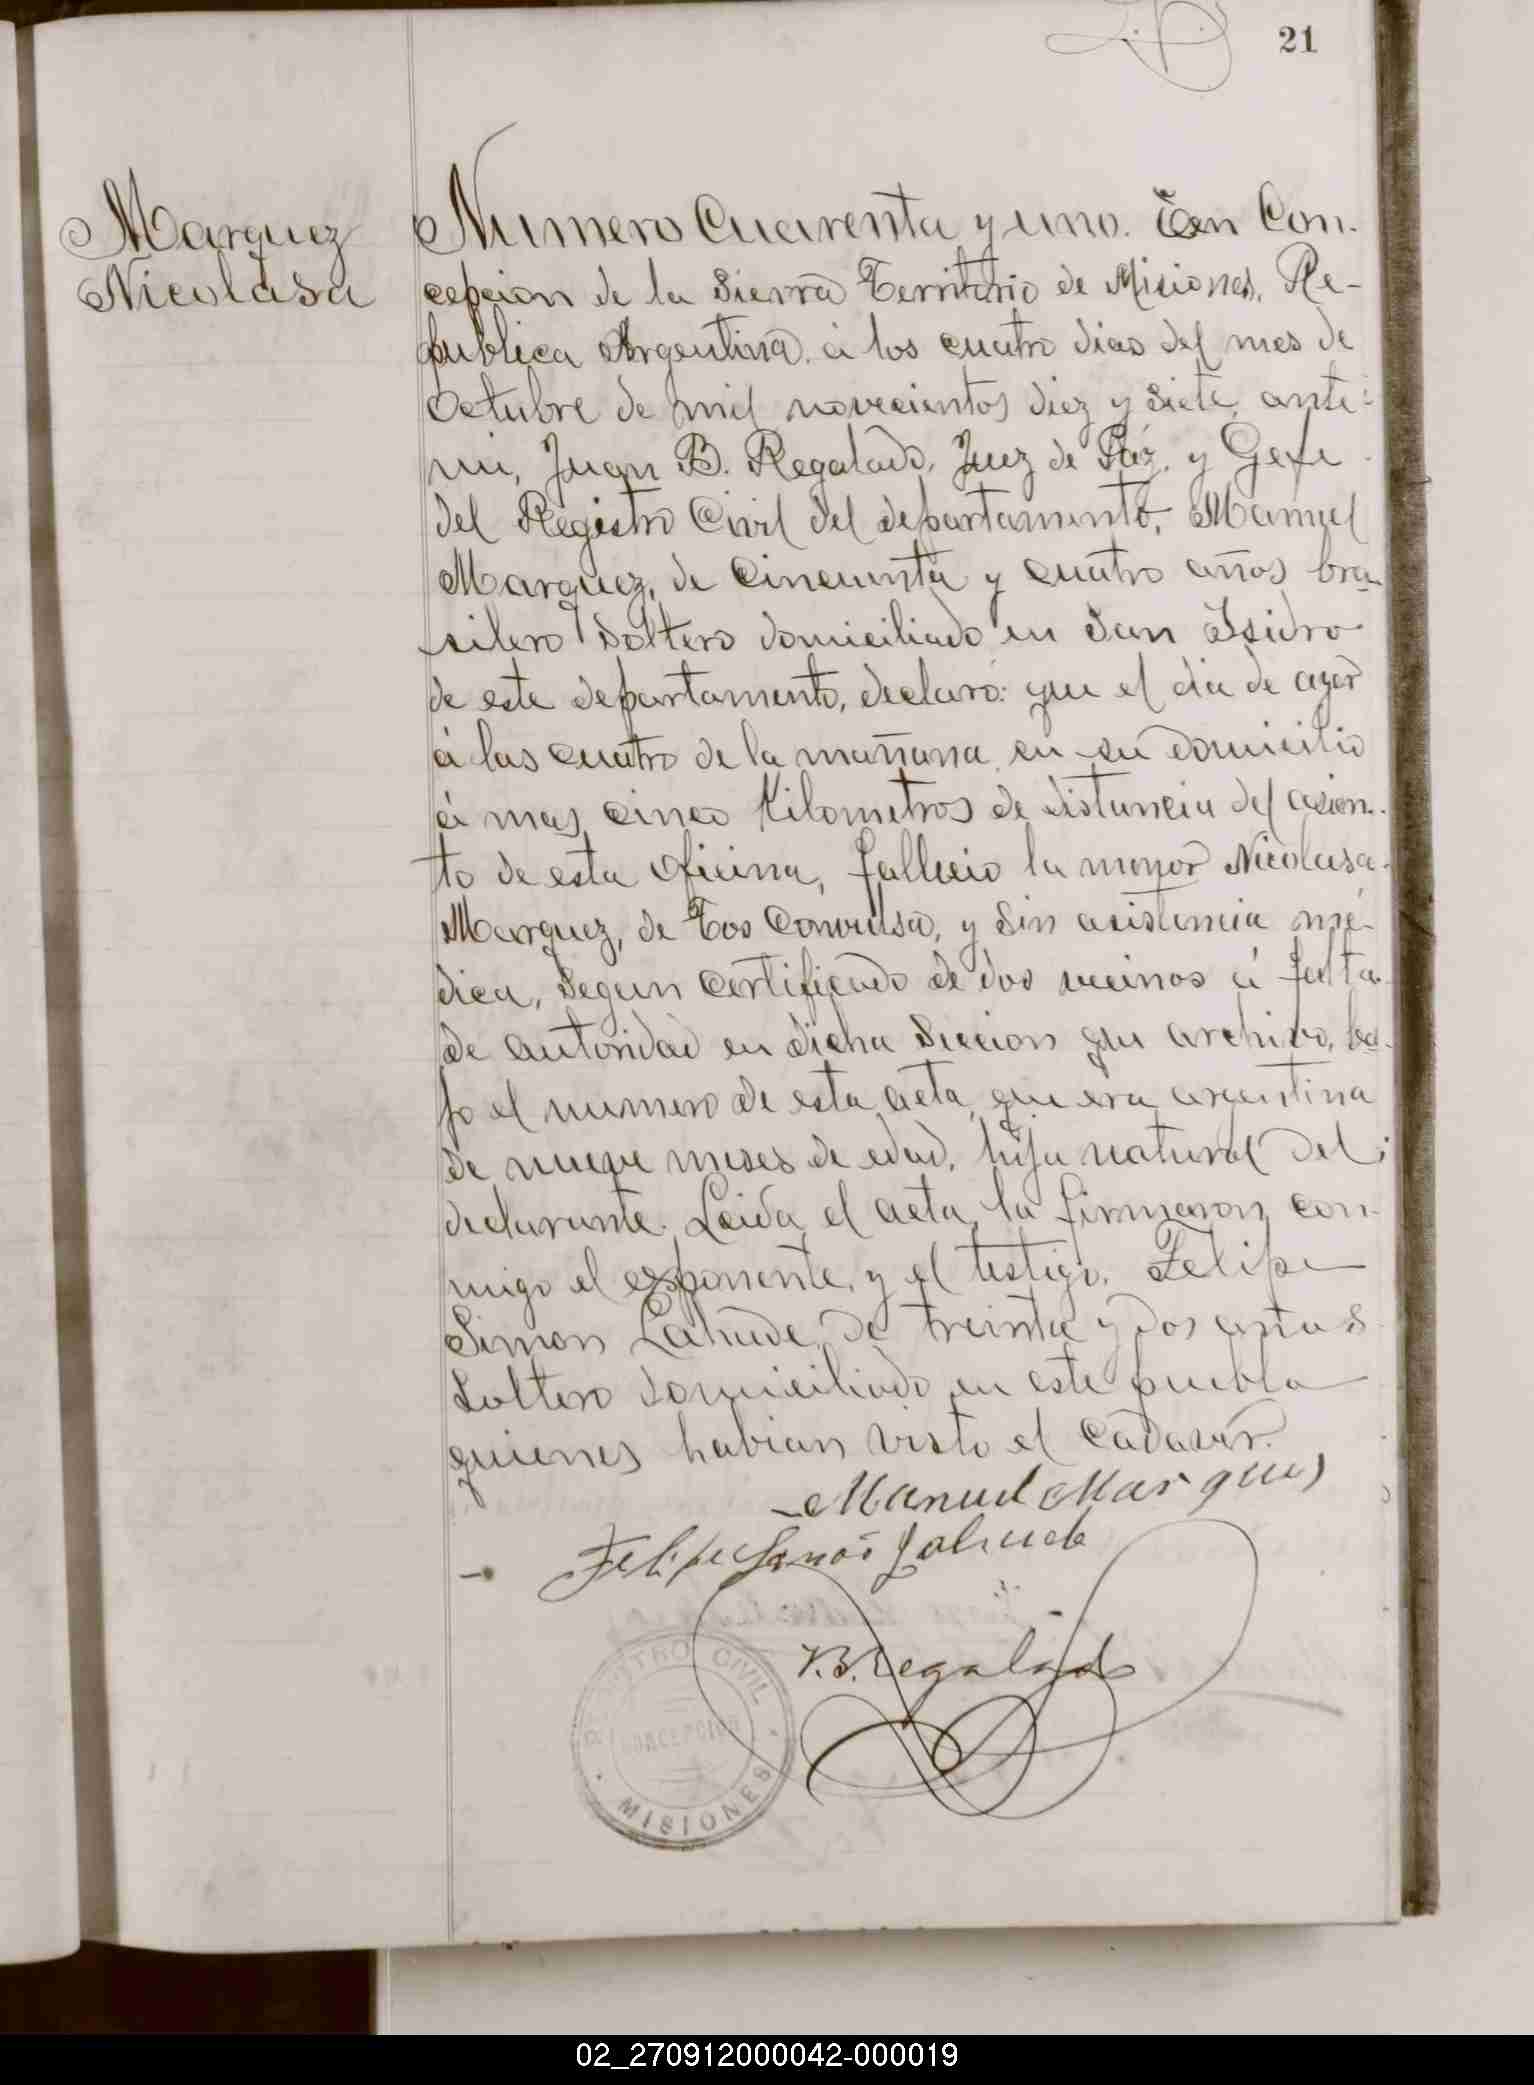 21
Marquez
Nicolasa
Numero Cuarenta y uno. En Con-
cepcion de la Sierra Territorio de Misiones, Re-
publica Argentina, á los cuatro dias del mes de
Octubre de mil novecientos diez y siete, ante
mi, Juan B. Regalado, Juez de Páz, y Gefe
del Registro Civil del departamento, Manuel
Marquez, de cincuenta y cuatro años bra-
silero soltero domiciliado en San Isidro
de este departamento, declaró: que el dia de ayer
á las cuatro de la mañana, en su domicilio
á mas cinco Kilometros de distancia del asien-
to de esta oficina, fallecio la menor Nicolasa
Marquez, de Tos Convulsa, y sin asistencia mé-
dica, segun certificado de dos vecinos á falta
de autoridad en dicha seccion que archivo, ba-
jo el numero de esta acta, que era argentina
de nueve meses de edad, hija natural del
declarante. Leida el acta, la firmaron con-
migo el exponente, y el testigo, Felipe
Simon Lahude, de treinta y dos años
soltero domiciliado en este pueblo
quienes habian visto el cadaver.
Manuel Marques
Felipe Simon Lahude
J. B. Regalado
REGISTRO CIVIL
CONCEPCION
MISIONES
02_270912000042-000019